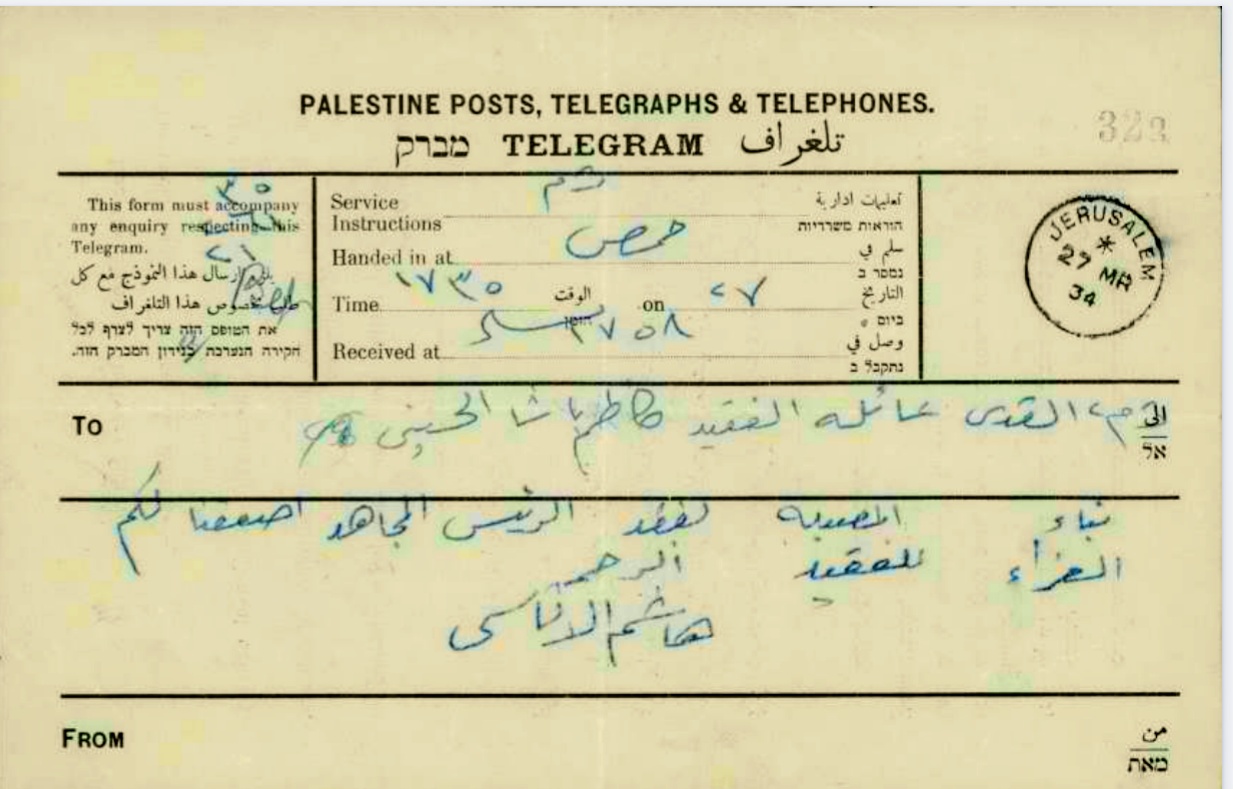 PALESTINE POSTS, TELEGRAPHS & TELEPHONES.
מברק TELEGRAM تلغراف
This form must accompany
any enquiry respecting this
Telegram.
يلزم ارسال هذا النموذج مع كل
طلب بخصوص هذا التلغراف
את הטופס הזה צריך לצרף לכל
חקירה הנערכת בנידון המברק הזה.
Service
Instructions
تعليمات ادارية
הוראות משרדיות
Handed in at حمص سلم في
נמסר ב
Time ١٧٣٥ الوقت on ٢٧ التاريخ
ביום
Received at وصل في
נתקבל ב
JERUSALEM
27 MR
34
To القدس عائلة الفقيد كاظم باشا الحسيني الى
אל
نباء المصيبة لفقد الرئيس المجاهد اصعقنا لكم
العزاء للفقيد الرحمة
هاشم الاتاسي
FROM من
מאת